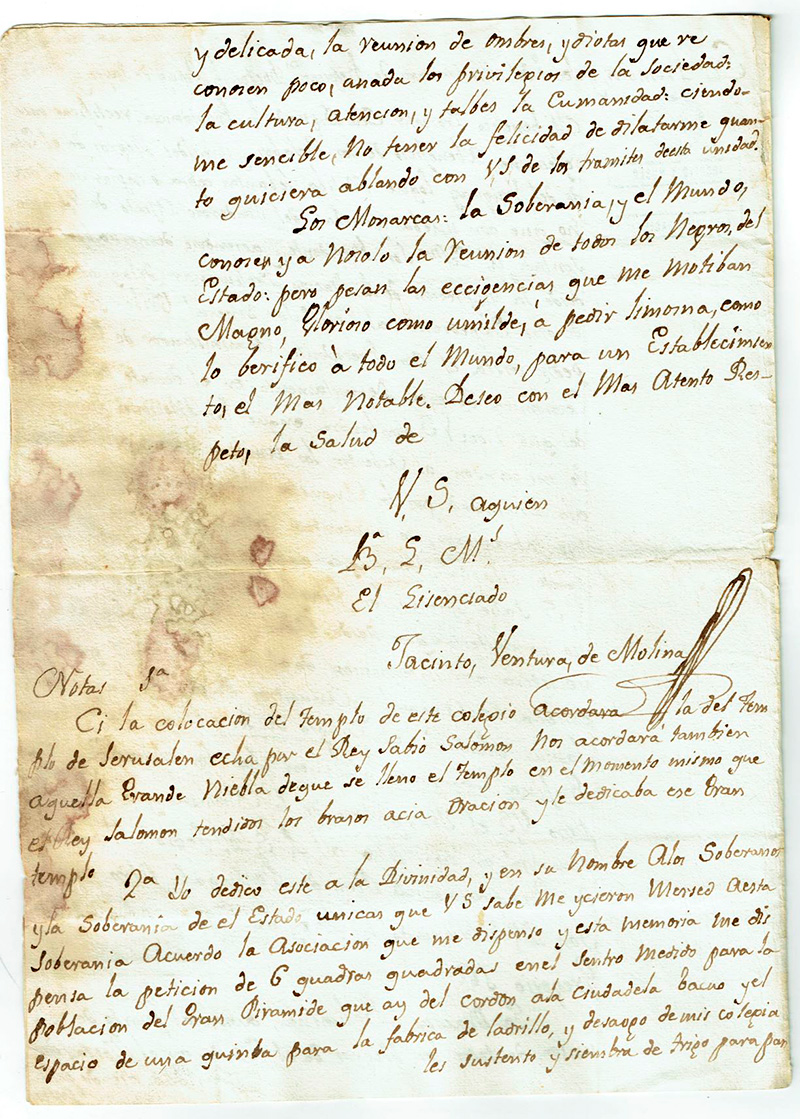 y delicada, la reunion de ombres, ydiotas que re
conosen poco, anada los privilepios de la sociedad:
la cultura, atencion, y talbes la Cumanidad: ciendo-
me sencible, No tener la felicidad de dilatarme quan-
to quiciera ablando con VS de los tramites deesta unidad.
Los Monarcas: la Soberania, y el Mundo,
conosen ya Nosolo la reunion de todos los Negros, del
Estado: pero pesan las eccigencias que me motiban
Magno, Glorioso como umilde, à pedir limosna, como
lo berifico à todo el Mundo, para un Establecimien
to, el Mas Notable. Deseo con el Mas Atento Res-
peto, la Salud de
V. S. aquien
B.ª L. M.s
El Lisenciado
Jacinto, Ventura, de Molina
Notas 1a
Ci la colocacion del templo de este colepio acordara la del Tem
plo de Jerusalen echa por el Rey Sabio Salomon Nos acordará tambien
aquella Grande Niebla deque se lleno el templo en el momento mismo que
el Rey Salomon tendidos los brasos acia Oracion y le dedicaba ese Gran
templo
2a Yo dedico este a la Divinidad, y en su Nombre Alos Soberanos
y la Soberania de el Estado unicas que VS sabe Me ycieron Mersed Aesta
Soberania Acuerdo la Asociacion que me dispenso y esta memoria me dis
pensa la peticion de 6 quadras quadradas enel sentro Medido para la
poblacion del Gran Piramide que ay del cordon ala ciudadela bacuo y el
espacio de una quinba para la fabrica de ladrillo, y desaogo de mis colepia
les sustento y siembra de tripo para pan